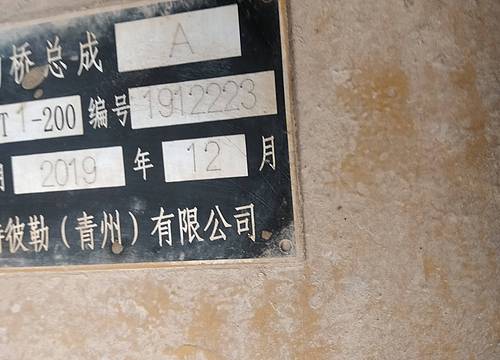 桥总成 A
T 1-200 编号 1912223
2019 年 12 月
彼勒（青州）有限公司